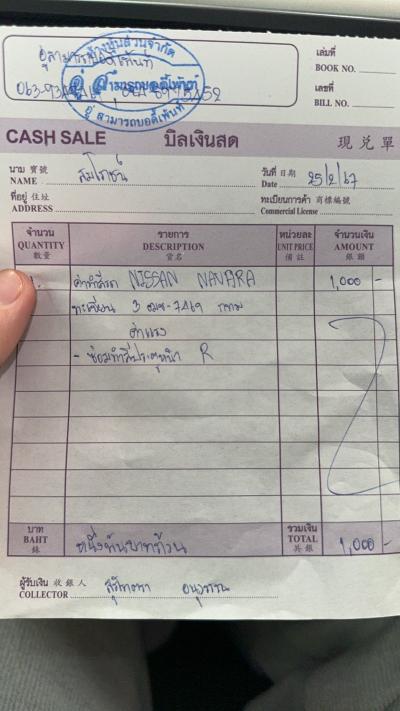 เล่มที่
BOOK NO.
เลขที่
BILL NO.
063-
อู่ สามารถบอดี้เพ้นท์
CASH SALE บิลเงินสด 現兌單
นาม 寶號
NAME
วันที่ 日期
Date 25/2/67
ที่อยู่ 住址
ADDRESS
ทะเบียนการค้า 商標編號
Commercial License
จำนวน รายการ หน่วยละ จำนวนเงิน
QUANTITY DESCRIPTION UNIT PRICE AMOUNT
數量 貨名 備註 銀額
1. ค่าทำสีรถ NISSAN NAVARA 1,000 -
ทะเบียน 3 7469 กทม
ค่าแรง
- ซ่อมทำสีประตูหน้า R
บาท รวมเงิน
BAHT หนึ่งพันบาทถ้วน TOTAL 1,000 -
銖 共銀
ผู้รับเงิน 收銀人
COLLECTOR